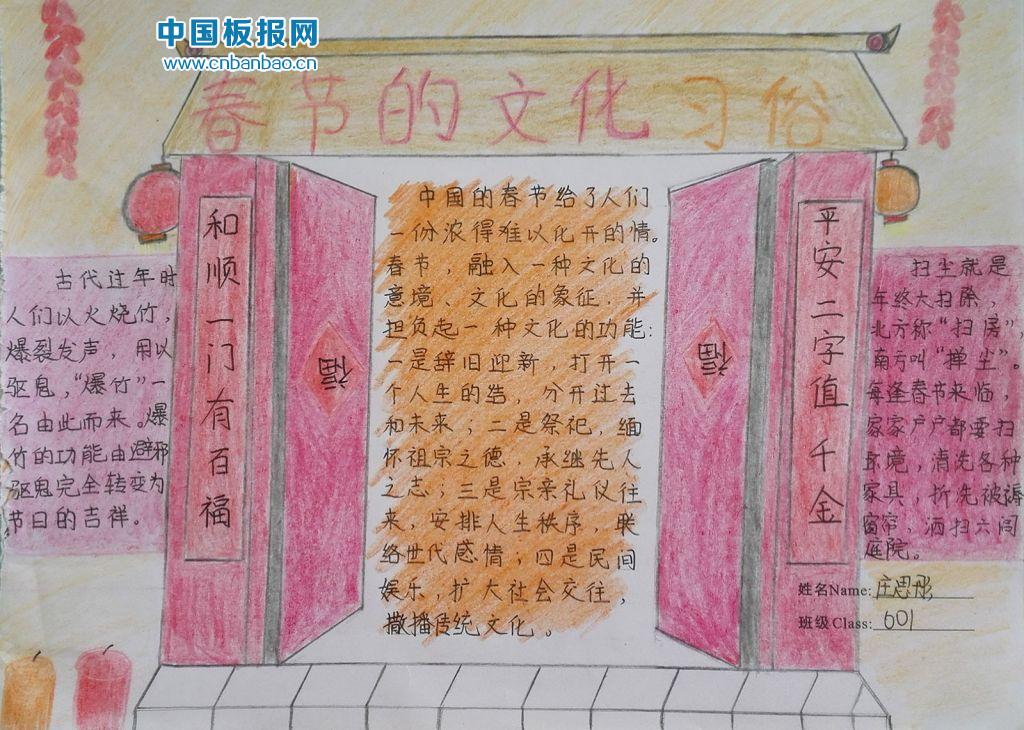 中国板报网
www.cnbanbao.cn
春节的文化习俗
和顺一门有百福
平安二字值千金
福
福
古代过年时
人们以火烧竹，
爆裂发声，用以
驱鬼，“爆竹”一
名由此而来。爆
竹的功能由避邪
驱鬼完全转变为
节日的吉祥。
中国的春节给了人们
一份浓得难以化开的情。
春节，融入一种文化的
意境、文化的象征，并
担负起一种文化的功能：
一是辞旧迎新，打开一
个人生的结，分开过去
和未来；二是祭祀，缅
怀祖宗之德，承继先人
之志；三是宗亲礼仪往
来，安排人生秩序，联
络世代感情；四是民间
娱乐，扩大社会交往，
撒播传统文化。
扫尘就是
年终大扫除，
北方称“扫房”，
南方叫“掸尘”。
每逢春节来临，
家家户户都要扫
环境，清洗各种
家具，拆洗被褥
窗帘，洒扫六闾
庭院。
姓名Name:
班级Class: 601